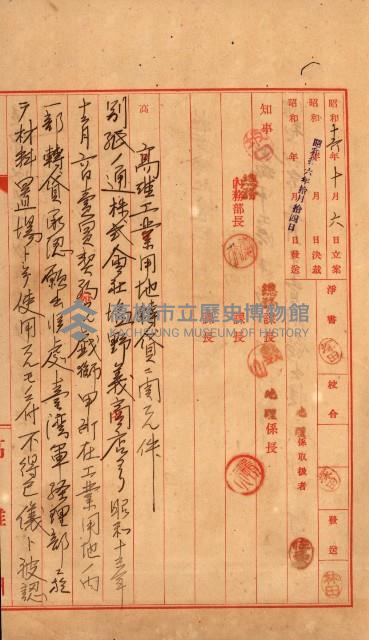 昭和十六年十月六日立案
淨書
校合
發送
昭和　年　月　日決裁
昭和　年　月　日發送
昭和六年拾月拾四日
地理係取扱者
知事
總務部長
內務部長
總務課長
課長
課長
地理係長
係長
高
高雄工業用地轉貸ニ關スル件
別紙ノ通株式會社塩野義商店ヨリ昭和十三年
十二月六日賣買契約ノ戲獅甲所在工業用地ノ內
一部轉貸承認願出候處臺灣軍經理部ニ於
テ材料置場トシテ使用スルモノニ付不得已儀ト被認
高雄市立歷史博物館
KAOHSIUNG MUSEUM OF HISTORY
高
雄